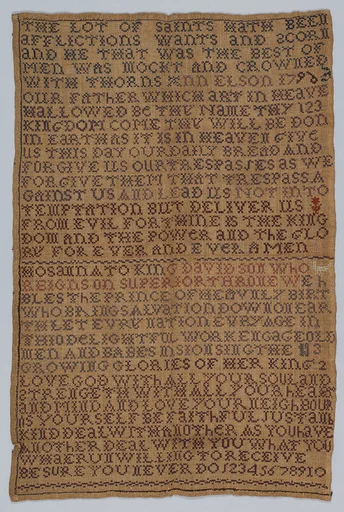 THE LOT OF SAINTS HATH BEEN
AFFLICTIONS WANTS AND SCORN
AND HE THAT WAS THE BEST OF
MEN WAS MOCKT AND CROWNED
WITH THORNS ANN ELSON 179
OUR FATHER WHICH ART IN HEAVE
HALLOWED BE THE NAME THY 123
KINGDOM COME THY WILL BE DON
IN EARTH AS IT IS IN HEAVEN GIVE
US THIS DAY OUR DAILY BREAD AND
FORGIVE US OUR TRESPASSES AS WE
FORGIVE THEM THAT TRESPASS A
GAINST US AND LEAD US NOT INTO
TEMPTATION BUT DELIVER US
FROM EVIL FOR THINE IS THE KING
DOM AND THE POWER AND THE GLO
RY FOR EVER AND EVER AMEN
HOSANNA TO KING DAVID SON WHO
REIGNS ON SUPERIOR THRONE WE
BLES THE PRINCE OF HEAVENLY BIRTH
WHO BRING SALVATION DOWN ON EAR
TH LET EVRY NATION EVRY AGE IN
THIS DELIGHTFUL WORK ENGAGE OLD
MEN AND BABES IN SION SING THE
GROWING GLORIES OF HER KING
LOVE GOD WITH ALL YOUR SOUL AND
STRENGTH WITH ALL YOUR HEART
AND MIND AND LOVE YOUR NEIGHBOUR
AS YOURSELF BE FAITHFUL JUST AND
KIND DEAL WITH ANOTHER AS YOU HAVE
ANOTHER DEAL WITH YOU WHAT YOU
UNWILLING TO RECEIVE
BE SURE YOU NEVER DO 12345678910